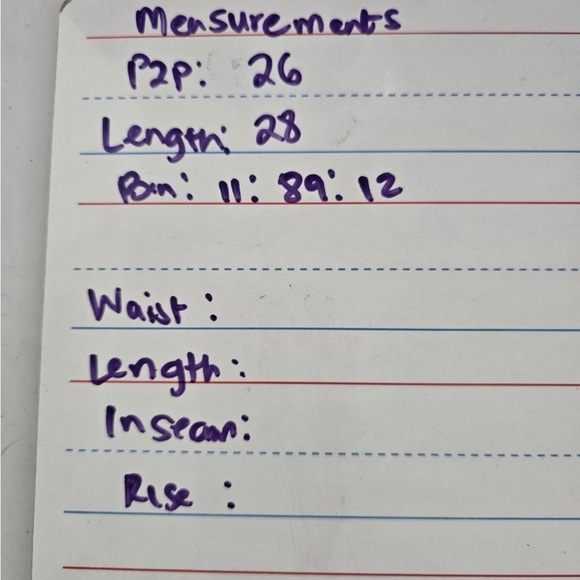 Measurements
P2P: 26
Length: 28
Bin: 11: 89: 12
Waist:
Length:
Inseam:
Rise: